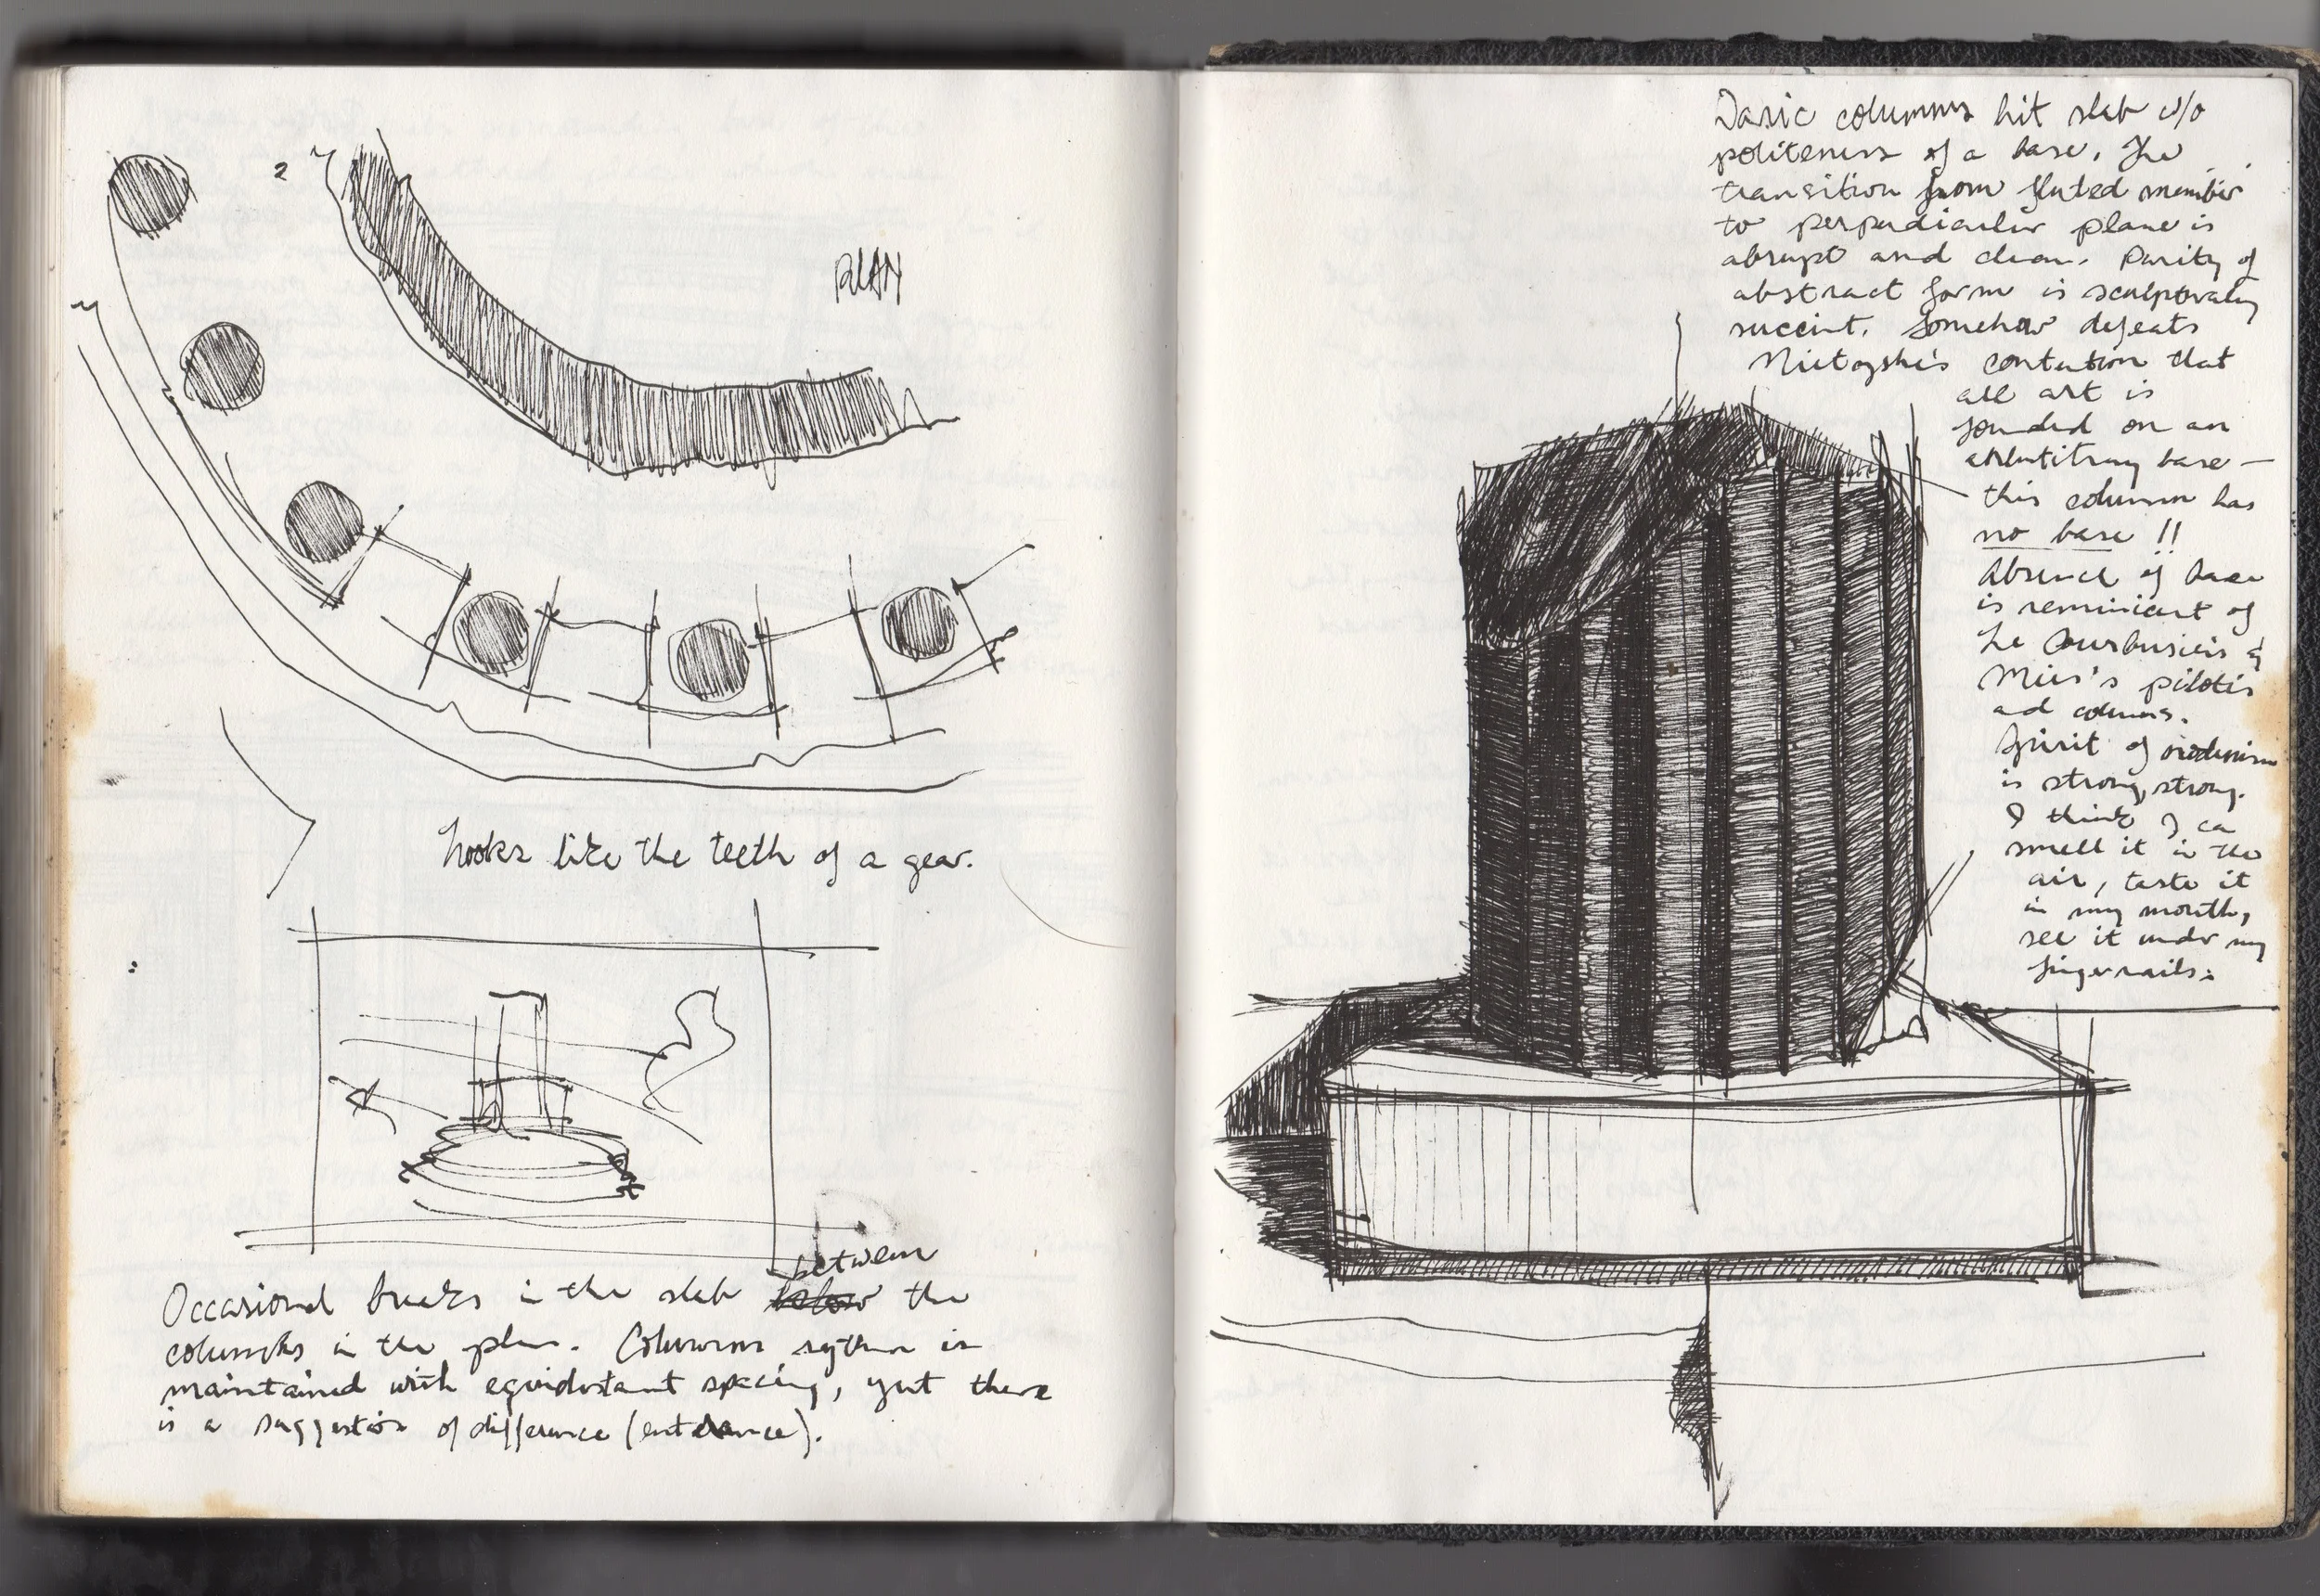 2
PLAN
Looks like the teeth of a gear.
Occasional breaks in the slab below between the
columns in the plan. Columns rythm is
maintained with equidistant spacing, yet there
is a suggestion of difference (entrance).
Doric columns hit slab w/o
politeness of a base. The
transition from fluted member
to perpudicular plane is
abrupt and clean. Purity of
abstract form is sculpturaly
succint. Somehow defeats
contention that
all art is
founded on an
base —
this column has
no base !!
Absence of base
is reminicent of
Le Courbusiers &
Mies's pilotis
and columns.
Spirit of modernism
is strong, strong.
I think I can
smell it in the
air, taste it
in my mouth,
see it under my
fingernails.